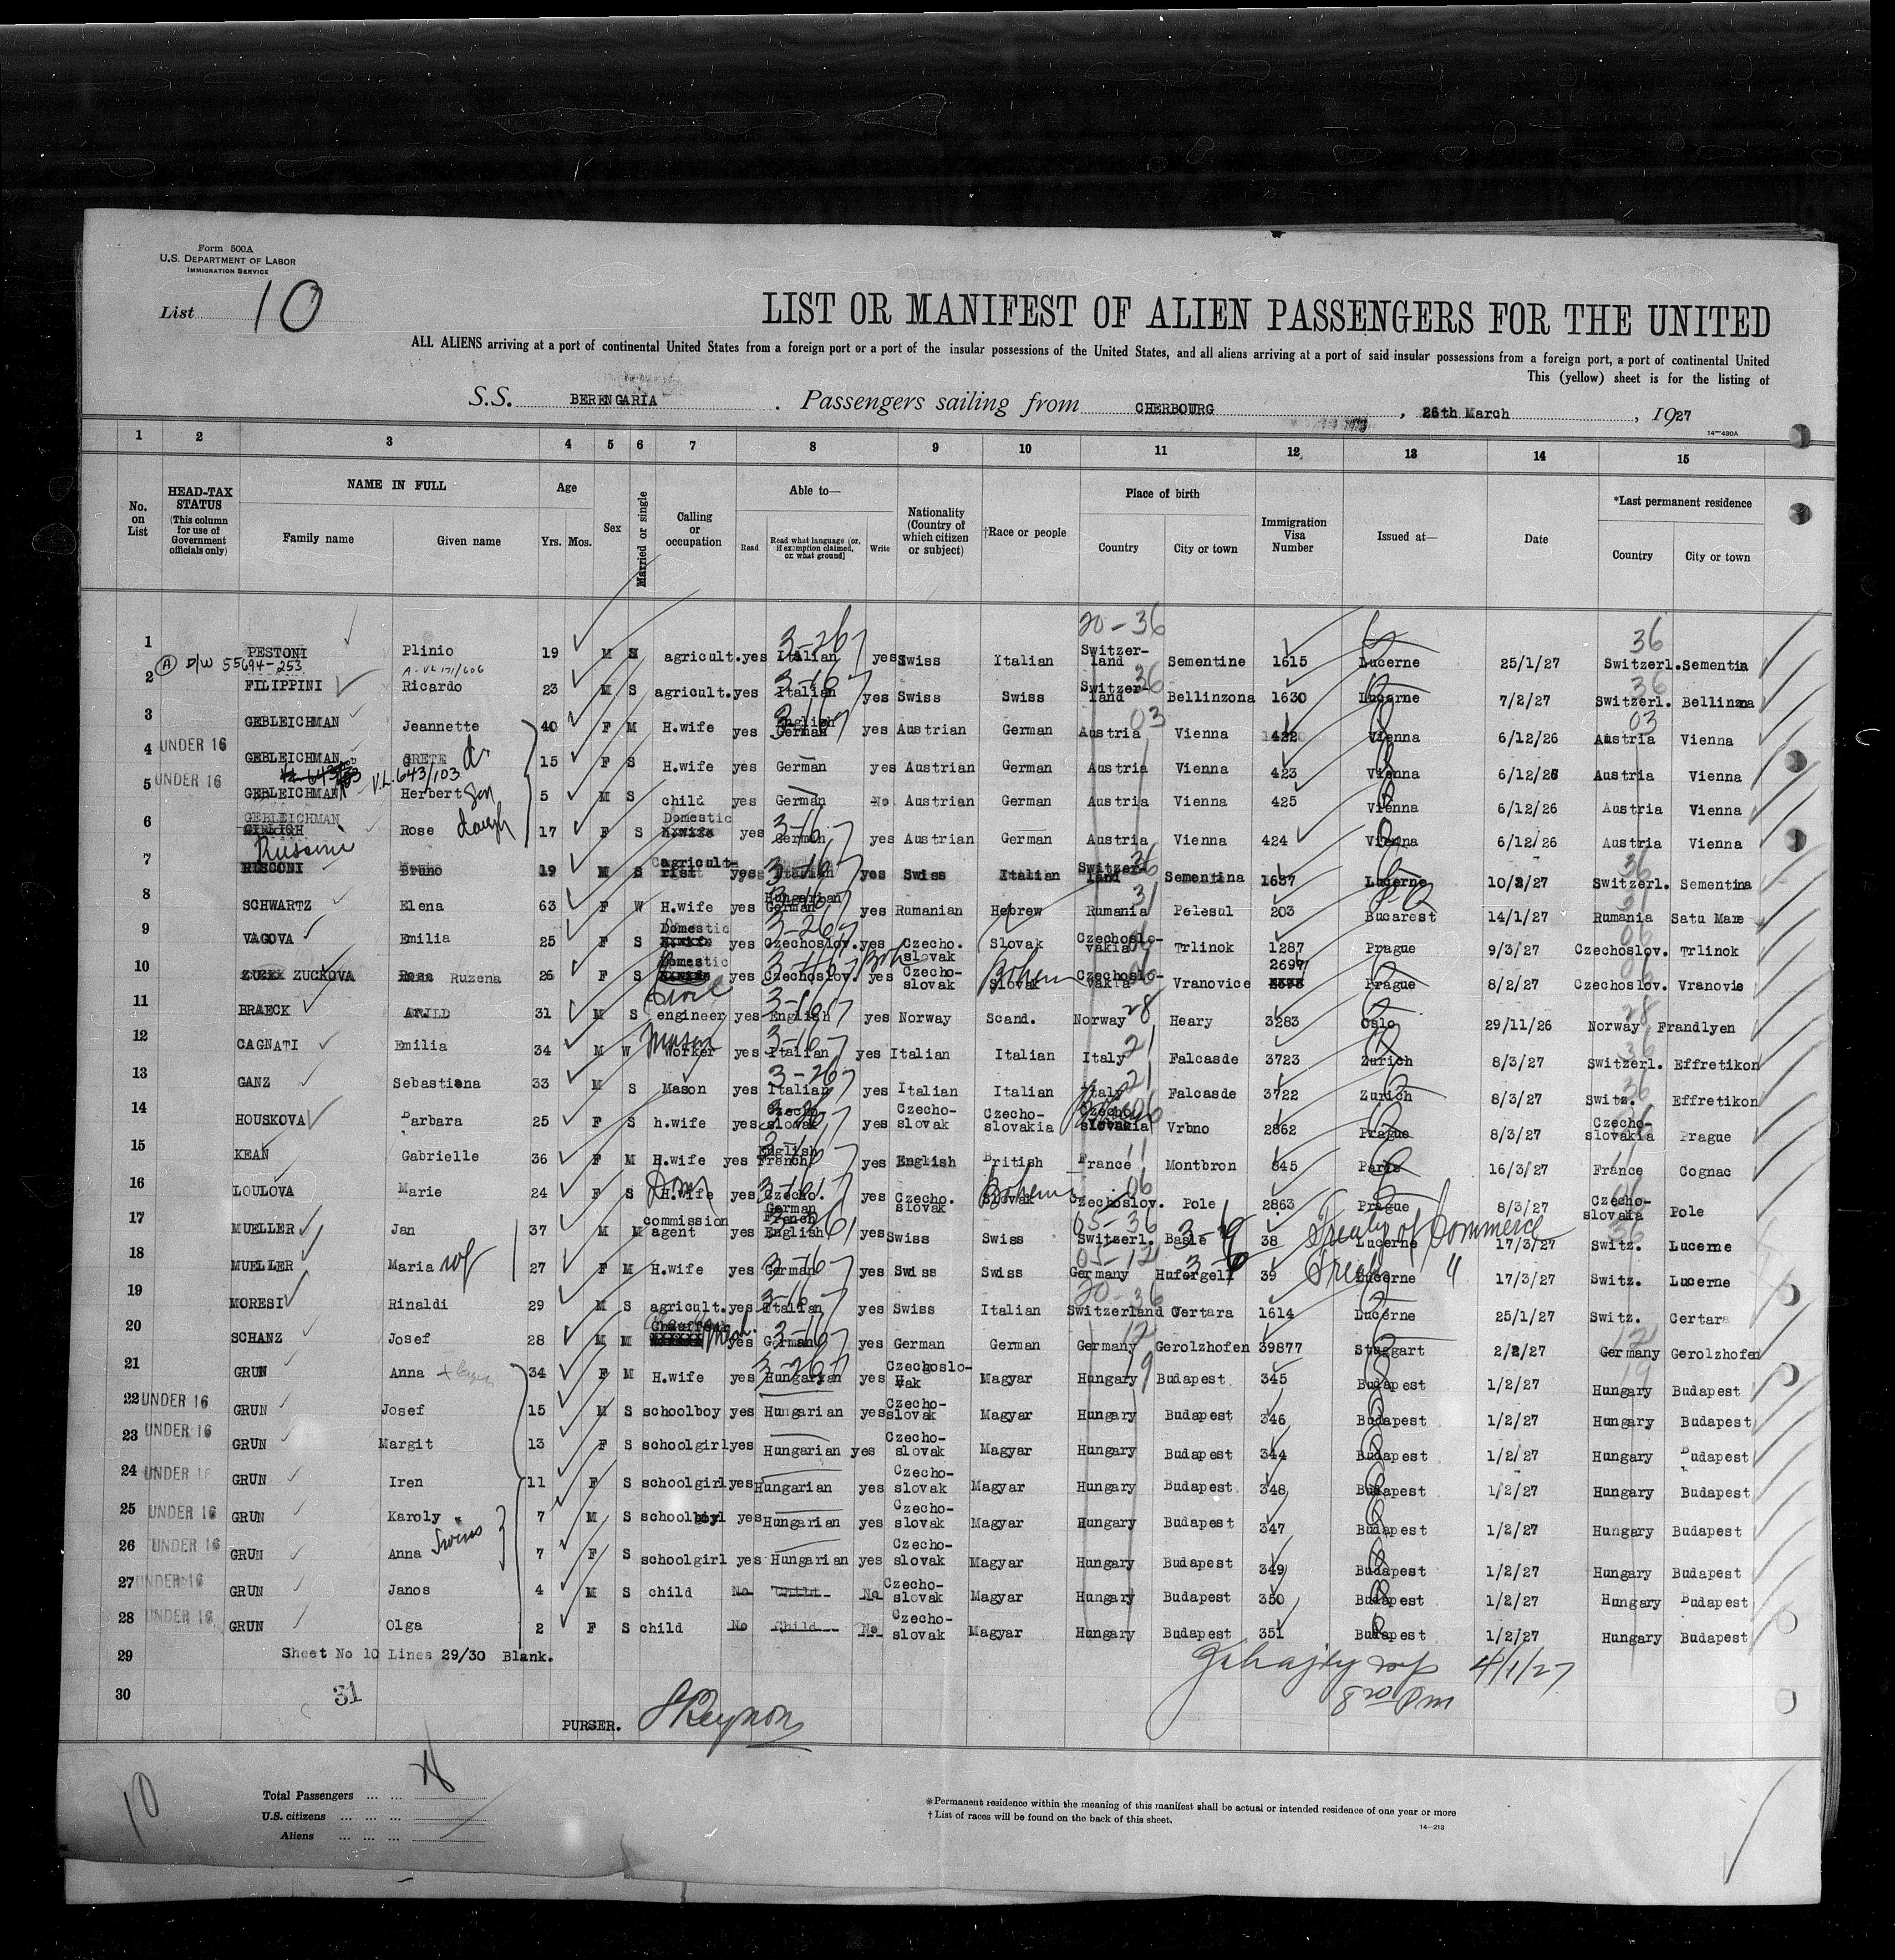 Form 500A
U.S. DEPARTMENT OF LABOR
IMMIGRATION SERVICE
List 10
LIST OR MANIFEST OF ALIEN PASSENGERS FOR THE UNITED
ALL ALIENS arriving at a port of continental United States from a foreign port or a port of the insular possessions of the United States, and all aliens arriving at a port of said insular possessions from a foreign port, a port of continental United
This (yellow) sheet is for the listing of
S.S. BERENGARIA . Passengers sailing from CHERBOURG , 26th March , 1927
14—430A
1 2 3 4 5 6 7 8 9 10 11 12 13 14 15
No. on List HEAD-TAX STATUS (This column for use of Government officials only) NAME IN FULL Family name Given name Age Yrs. Mos. Sex Married or single Calling or occupation Able to— Read Read what language (or, if exemption claimed, on what ground) Write Nationality (Country of which citizen or subject) †Race or people Place of birth Country City or town Immigration Visa Number Issued at— Date *Last permanent residence Country City or town
20-36
1 PESTONI Plinio 19 M S agricult. yes 3-26 Italian yes Swiss Italian Switzer-land Sementine 1615 Lucerne 25/1/27 36 Switzerl. Sementia
A D/W 55694-253 A-VL 171/606
2 FILIPPINI Ricardo 23 M S agricult. yes 3-16 Italian yes Swiss Swiss Switzer-land 36 Bellinzona 1630 Lucerne 7/2/27 36 Switzerl. Bellinzona
3 GEBLEICHMAN Jeannette 40 F M H.wife yes 3-16 English German yes Austrian German Austria 03 Vienna 1422 Vienna 6/12/26 03 Austria Vienna
4 UNDER 16 GEBLEICHMAN GRETE 15 F S H.wife yes German yes Austrian German Austria Vienna 423 Vienna 6/12/26 Austria Vienna
V.L.643/103
5 UNDER 16 GEBLEICHMAN Herbert Son 5 M S child yes German No Austrian German Austria Vienna 425 Vienna 6/12/26 Austria Vienna
6 GEBLEICHMAN Rose daugh 17 F S Domestic yes 3-16 German yes Austrian German Austria Vienna 424 Vienna 6/12/26 Austria Vienna
Rusconi
7 RISCONI Bruno 19 M S agricult-rist yes 3-16 Italian yes Swiss Italian Switzer-land 36 Sementina 1637 Lucerne 10/2/27 36 Switzerl. Sementina
8 SCHWARTZ Elena 63 F W H.wife yes Hungarian German yes Rumanian Hebrew Rumania 31 Pelesul 203 Bucarest 14/1/27 31 Rumania Satu Mare
9 VAGOVA Emilia 25 F S Domestic yes 3-26 Czechoslov. yes Czecho.slovak Slovak Czechoslo-vakia Trlinok 1287 Prague 9/3/27 06 Czechoslov. Trlinok
10 ZUCKOVA Rosa Ruzena 26 F S Domestic yes Czechoslov. yes Boh Czecho-slovak Slovak Bohem Czechoslo-vakia Vranovice 2697 Prague 8/2/27 Czechoslov. Vranovie
11 BRAECK ARILD 31 M S Civil engineer yes 3-16 English yes Norway Scand. Norway 28 Heary 3283 Oslo 29/11/26 28 Norway Frandlyen
12 CAGNATI Emilia 34 M W Mason Worker yes 3-16 Italian yes Italian Italian Italy 21 Falcasde 3723 Zurich 8/3/27 36 Switzerl. Effretikon
13 GANZ Sebastiena 33 M S Mason yes 3-26 Italian yes Italian Italian Italy 21 Falcasde 3722 Zurich 8/3/27 36 Switz. Effretikon
14 HOUSKOVA Barbara 25 F S h.wife yes Czecho slovak yes Czecho-slovak Czecho-slovakia Czecho slovakia 06 Vrbno 2862 Prague 8/3/27 Czecho-slovakia Prague
15 KEAN Gabrielle 36 F M H.wife yes English French yes English British France 11 Montbron 845 Paris 16/3/27 11 France Cognac
16 LOULOVA Marie 24 F S Dom H.wife yes 3-16 Czecho. yes Czecho.slovak Slovak Bohem Czechoslov. 06 Pole 2863 Prague 8/3/27 Czecho-slovakia Pole
17 MUELLER Jan 37 M M commission agent yes German French English yes Swiss Swiss 05-36 Switzerl. Basle 3-6 38 Lucerne Treaty of Commerce 17/3/27 36 Switz. Lucerne
18 MUELLER Maria wf 27 F M H.wife yes 3-16 German yes Swiss Swiss 05-12 Germany Hufergell 3-6 39 Lucerne Treaty " 17/3/27 Switz. Lucerne
19 MORESI Rinaldi 29 M S agricult. yes 3-16 Italian yes Swiss Italian 20-36 Switzerland Certara 1614 Lucerne 25/1/27 Switz. Certara
20 SCHANZ Josef 28 M M Chauffeur Mech. yes 3-16 German yes German German Germany 12 Gerolzhofen 39877 Stuggart 2/2/27 12 Germany Gerolzhofen
21 GRUN Anna 34 F M H.wife yes 3-26 Hungarian yes Czechoslo-vak Magyar Hungary 19 Budapest 345 Budapest 1/2/27 19 Hungary Budapest
22 UNDER 16 GRUN Josef 15 M S schoolboy yes Hungarian yes Czecho-slovak Magyar Hungary Budapest 346 Budapest 1/2/27 Hungary Budapest
23 UNDER 16 GRUN Margit 13 F S schoolgirl yes Hungarian yes Czecho-slovak Magyar Hungary Budapest 344 Budapest 1/2/27 Hungary Budapest
24 UNDER 16 GRUN Iren 11 F S schoolgirl yes Hungarian yes Czecho-slovak Magyar Hungary Budapest 348 Budapest 1/2/27 Hungary Budapest
25 UNDER 16 GRUN Karoly 7 M S schoolboy yes Hungarian yes Czecho-slovak Magyar Hungary Budapest 347 Budapest 1/2/27 Hungary Budapest
Twins
26 UNDER 16 GRUN Anna 7 F S schoolgirl yes Hungarian yes Czecho-slovak Magyar Hungary Budapest 349 Budapest 1/2/27 Hungary Budapest
27 UNDER 16 GRUN Janos 4 M S child No Child No Czecho-slovak Magyar Hungary Budapest 350 Budapest 1/2/27 Hungary Budapest
28 UNDER 16 GRUN Olga 2 F S child No Child No Czecho-slovak Magyar Hungary Budapest 351 Budapest 1/2/27 Hungary Budapest
29 Sheet No 10 Lines 29/30 Blank.
4/1/27
30 31
8 00 Pm
PURSER.
10
Total Passengers ... ...
U.S. citizens ... ... ...
Aliens ... ... ...
*Permanent residence within the meaning of this manifest shall be actual or intended residence of one year or more
† List of races will be found on the back of this sheet.
14—213